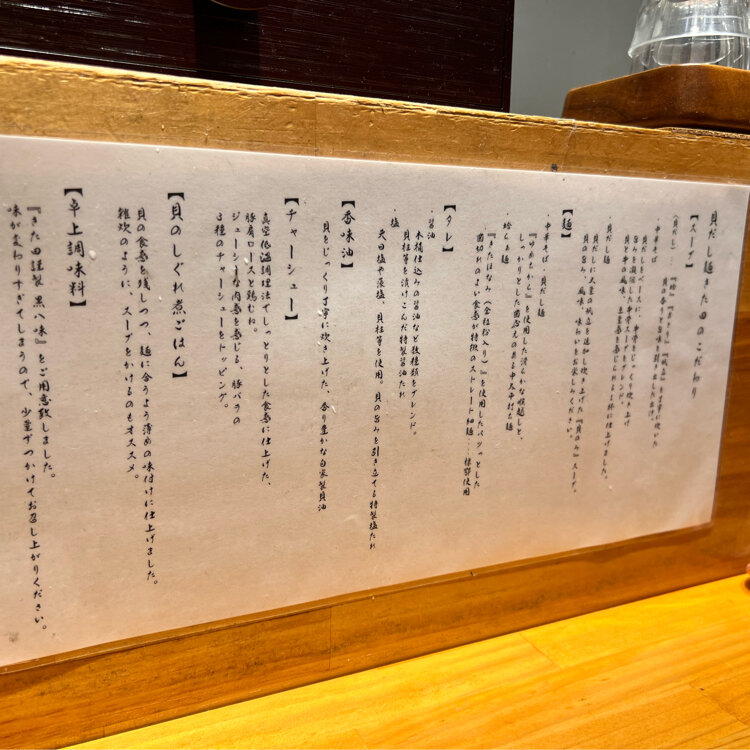 貝だし麺きた田のこだわり
【スープ】
《貝だし》…『蛤』『あさり』『帆立』を丁寧に炊いた
貝の香りと旨味を引き出しただし。
・中華そば
貝だしをベースに、牛骨をじっくり炊き上げ
旨みを凝縮した牛骨スープをブレンド。
貝と牛の風味、重厚感を感じられる1杯に仕上げました。
・貝だし麺
貝だしに大量の帆立を追加し炊き上げた『貝のみ』スープ。
貝の旨み、風味、味わいをお楽しみください。
【麺】
・中華そば・貝だし麺
『ゆめちから』を使用した滑らかな喉越しと、
しっかりとした歯応えのある中太平打ち麺
・絵らぁ麺
『きたほなみ（全粒粉入り）』を使用したパツっとした
歯切れのよい食感が特徴のストレート細麺
【タレ】
・醤油
木桶仕込みの醤油など数種類をブレンド。
貝柱等を漬けこんだ特製醤油だれ
・塩
天日塩や藻塩、貝柱等を使用。貝の旨みを引き立てる特製塩だれ
【香味油】
貝をじっくり丁寧に炊き上げた、香り豊かな自家製貝油
【チャーシュー】
真空低温調理法でしっとりとした食感に仕上げた、
豚肩ロースと鶏むね。
ジューシーな肉感を感じる、豚バラの
3種のチャーシューをトッピング。
【貝のしぐれ煮ごはん】
貝の食感を残しつつ、麺に合うよう薄めの味付けに仕上げました。
雑炊のように、スープをかけるのもオススメ。
【卓上調味料】
『きた田謹製 黒八味』をご用意致しました。
味がまわりすぎてしまうので、少量ずつかけてお召し上がりください。